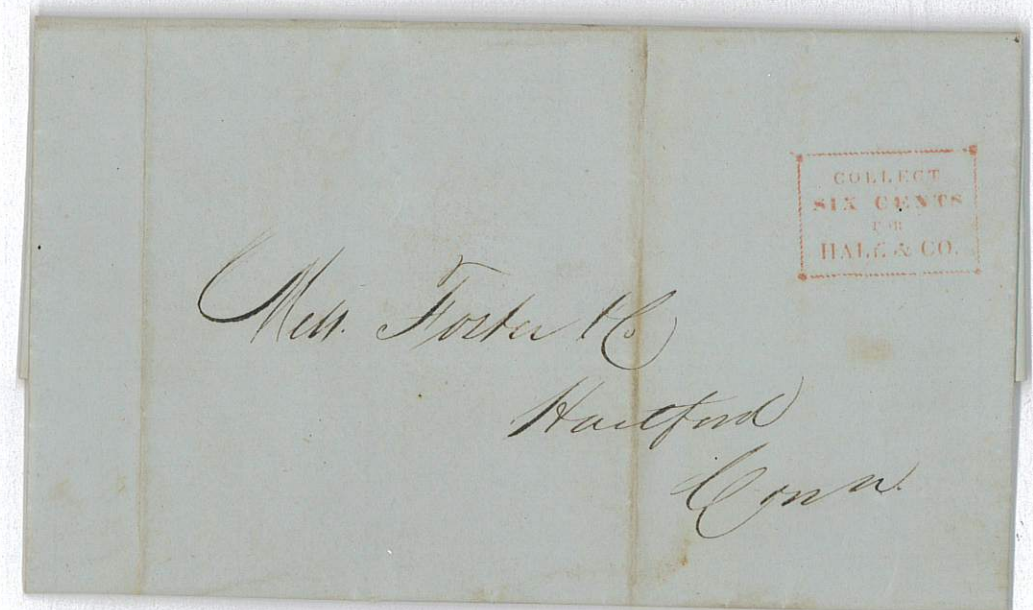 COLLECT
SIX CENTS
FOR
HALE & CO.
Mess. Foster & Co
Hartford
Conn.